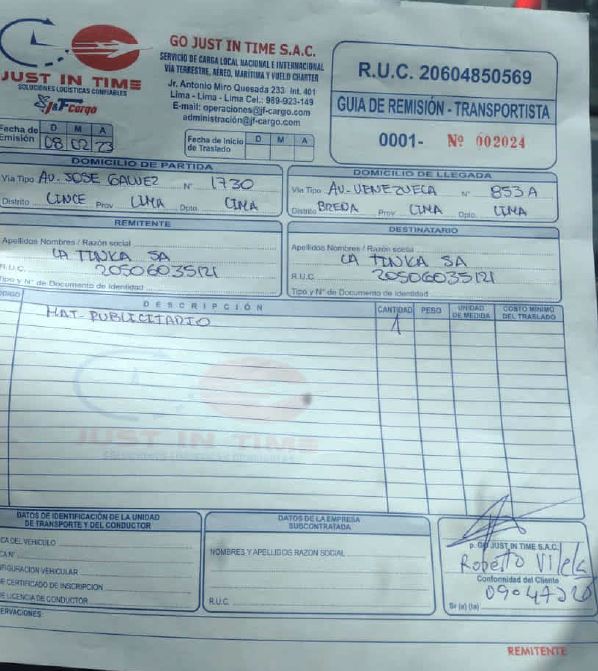 JUST IN TIME
SOLUCIONES LOGÍSTICAS CONFIABLES
J&F Cargo
GO JUST IN TIME S.A.C.
SERVICIO DE CARGA LOCAL NACIONAL E INTERNACIONAL
VÍA TERRESTRE, AEREO, MARÍTIMA Y VUELO CHARTER
Jr. Antonio Miro Quesada 233 Int. 401
Lima - Lima - Lima Cel.: 989-923-149
E-mail: operaciones@jf-cargo.com
administración@jf-cargo.com
R.U.C. 20604850569
GUIA DE REMISIÓN - TRANSPORTISTA
0001- Nº 002024
Fecha de Emisión D M A
08 02 23
Fecha de Inicio de Traslado D M A
DOMICILIO DE PARTIDA
Vía Tipo AV. JOSE GALVEZ Nº 1730
Distrito LINCE Prov LIMA Dpto. LIMA
DOMICILIO DE LLEGADA
Vía Tipo AV. VENEZUELA Nº 853A
Distrito BREÑA Prov LIMA Dpto. LIMA
REMITENTE
Apellidos Nombres / Razón social
LA TINKA SA
R.U.C. 20506035121
Tipo y N° de Documento de Identidad
DESTINATARIO
Apellidos Nombres / Razón social
LA TINKA SA
R.U.C 20506035121
Tipo y N° de Documento de Identidad
DESCRIPCIÓN CANTIDAD PESO UNIDAD DE MEDIDA COSTO MINIMO DEL TRASLADO
MAT. PUBLICITARIO 1
JUST IN TIME
DATOS DE IDENTIFICACIÓN DE LA UNIDAD
DE TRANSPORTE Y DEL CONDUCTOR
CA DEL VEHICULO
CA N°
FIGURACIÓN VEHICULAR
DE CERTIFICADO DE INSCRIPCION
DE LICENCIA DE CONDUCTOR
ERVACIONES:
DATOS DE LA EMPRESA
SUBCONTRATADA
NOMBRES Y APELLIDOS RAZON SOCIAL
R.U.C.
p. GO JUST IN TIME S.A.C.
Roberto Vilela
Conformidad del Cliente
Sr (a) (ta)
REMITENTE